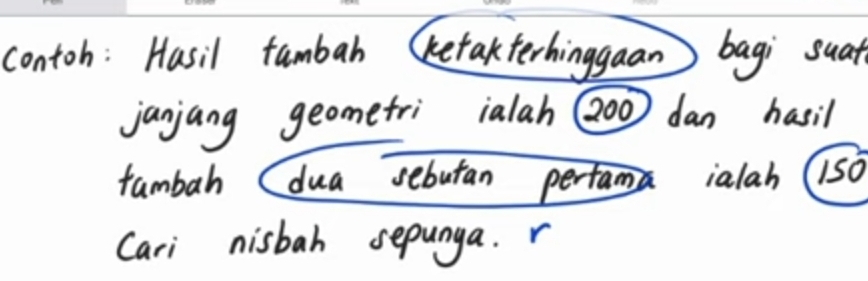 Contoh: Hasil tambah ketakterhinggaan bagi
janjang geometri ialah 200 dan hasil
tambah dua sebutan pertama ialah 150
Cari nisbah sepunya. r